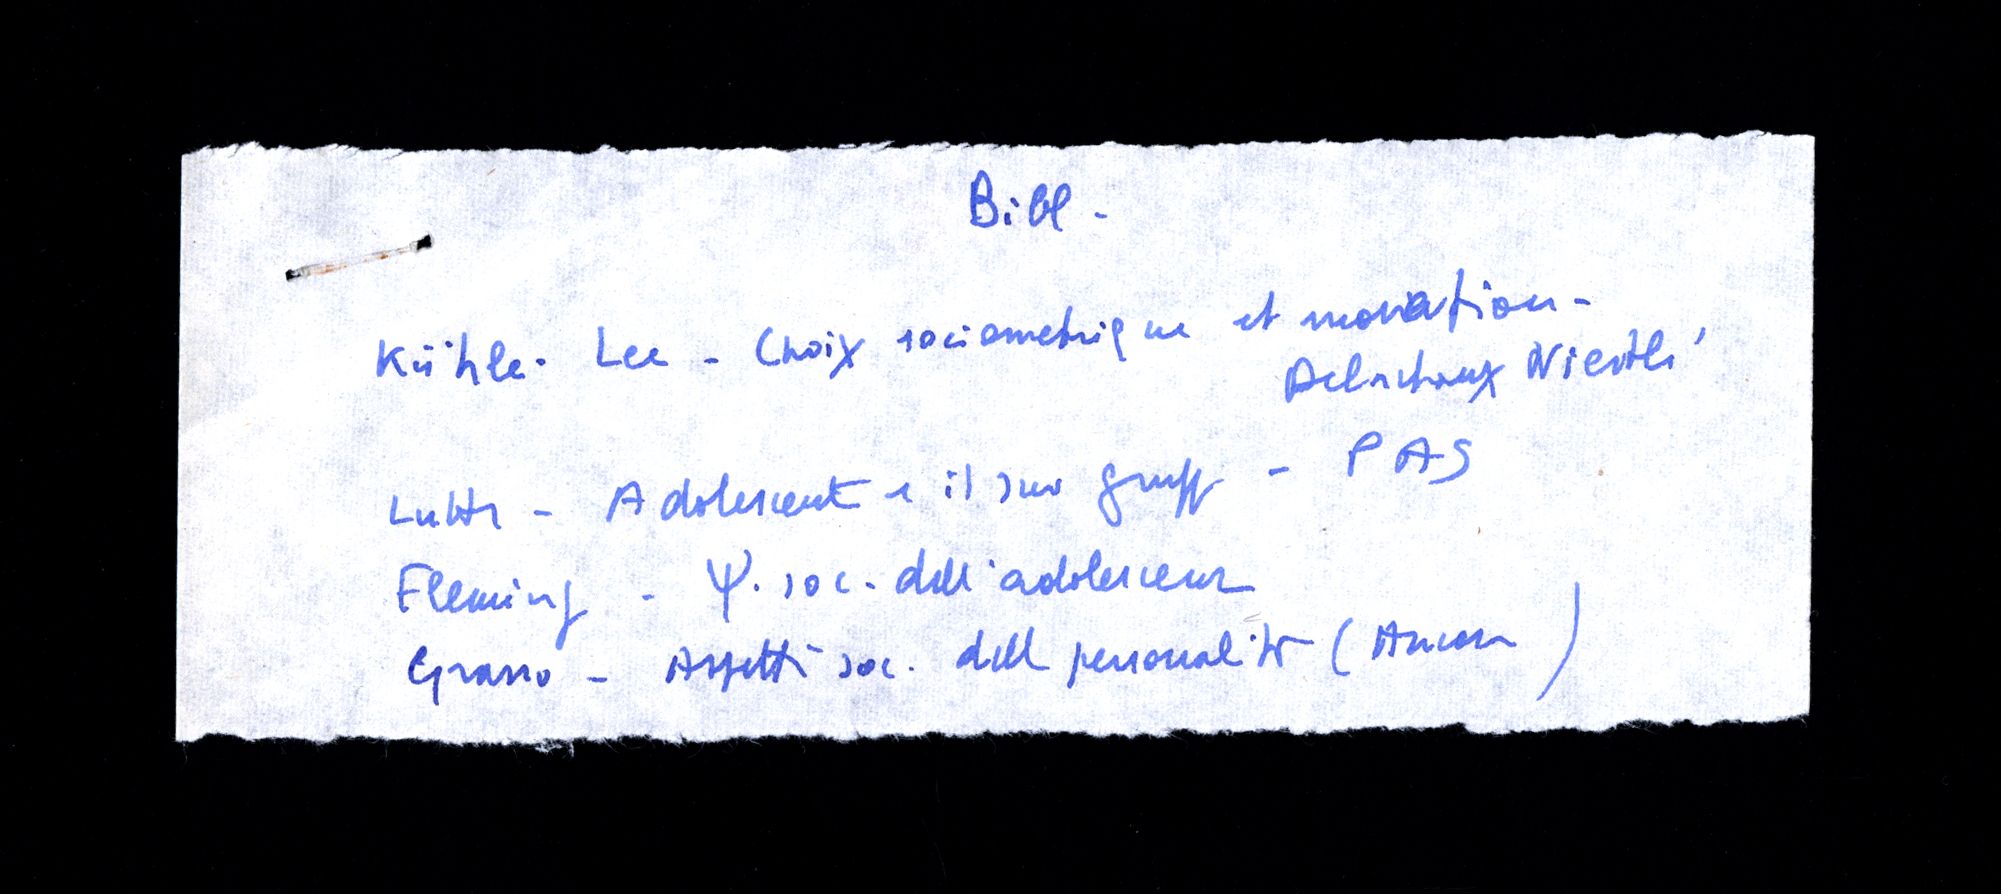 Bibl -
Kühle. Lee - Choix sociometrique et
Delachaux Niestlé
Lutte - Adolescente e il suo grupp - PAS
Fleming - Ψ. soc. dell'adolescenz
Grasso - Aspetti soc. dell personalità (Ancona)